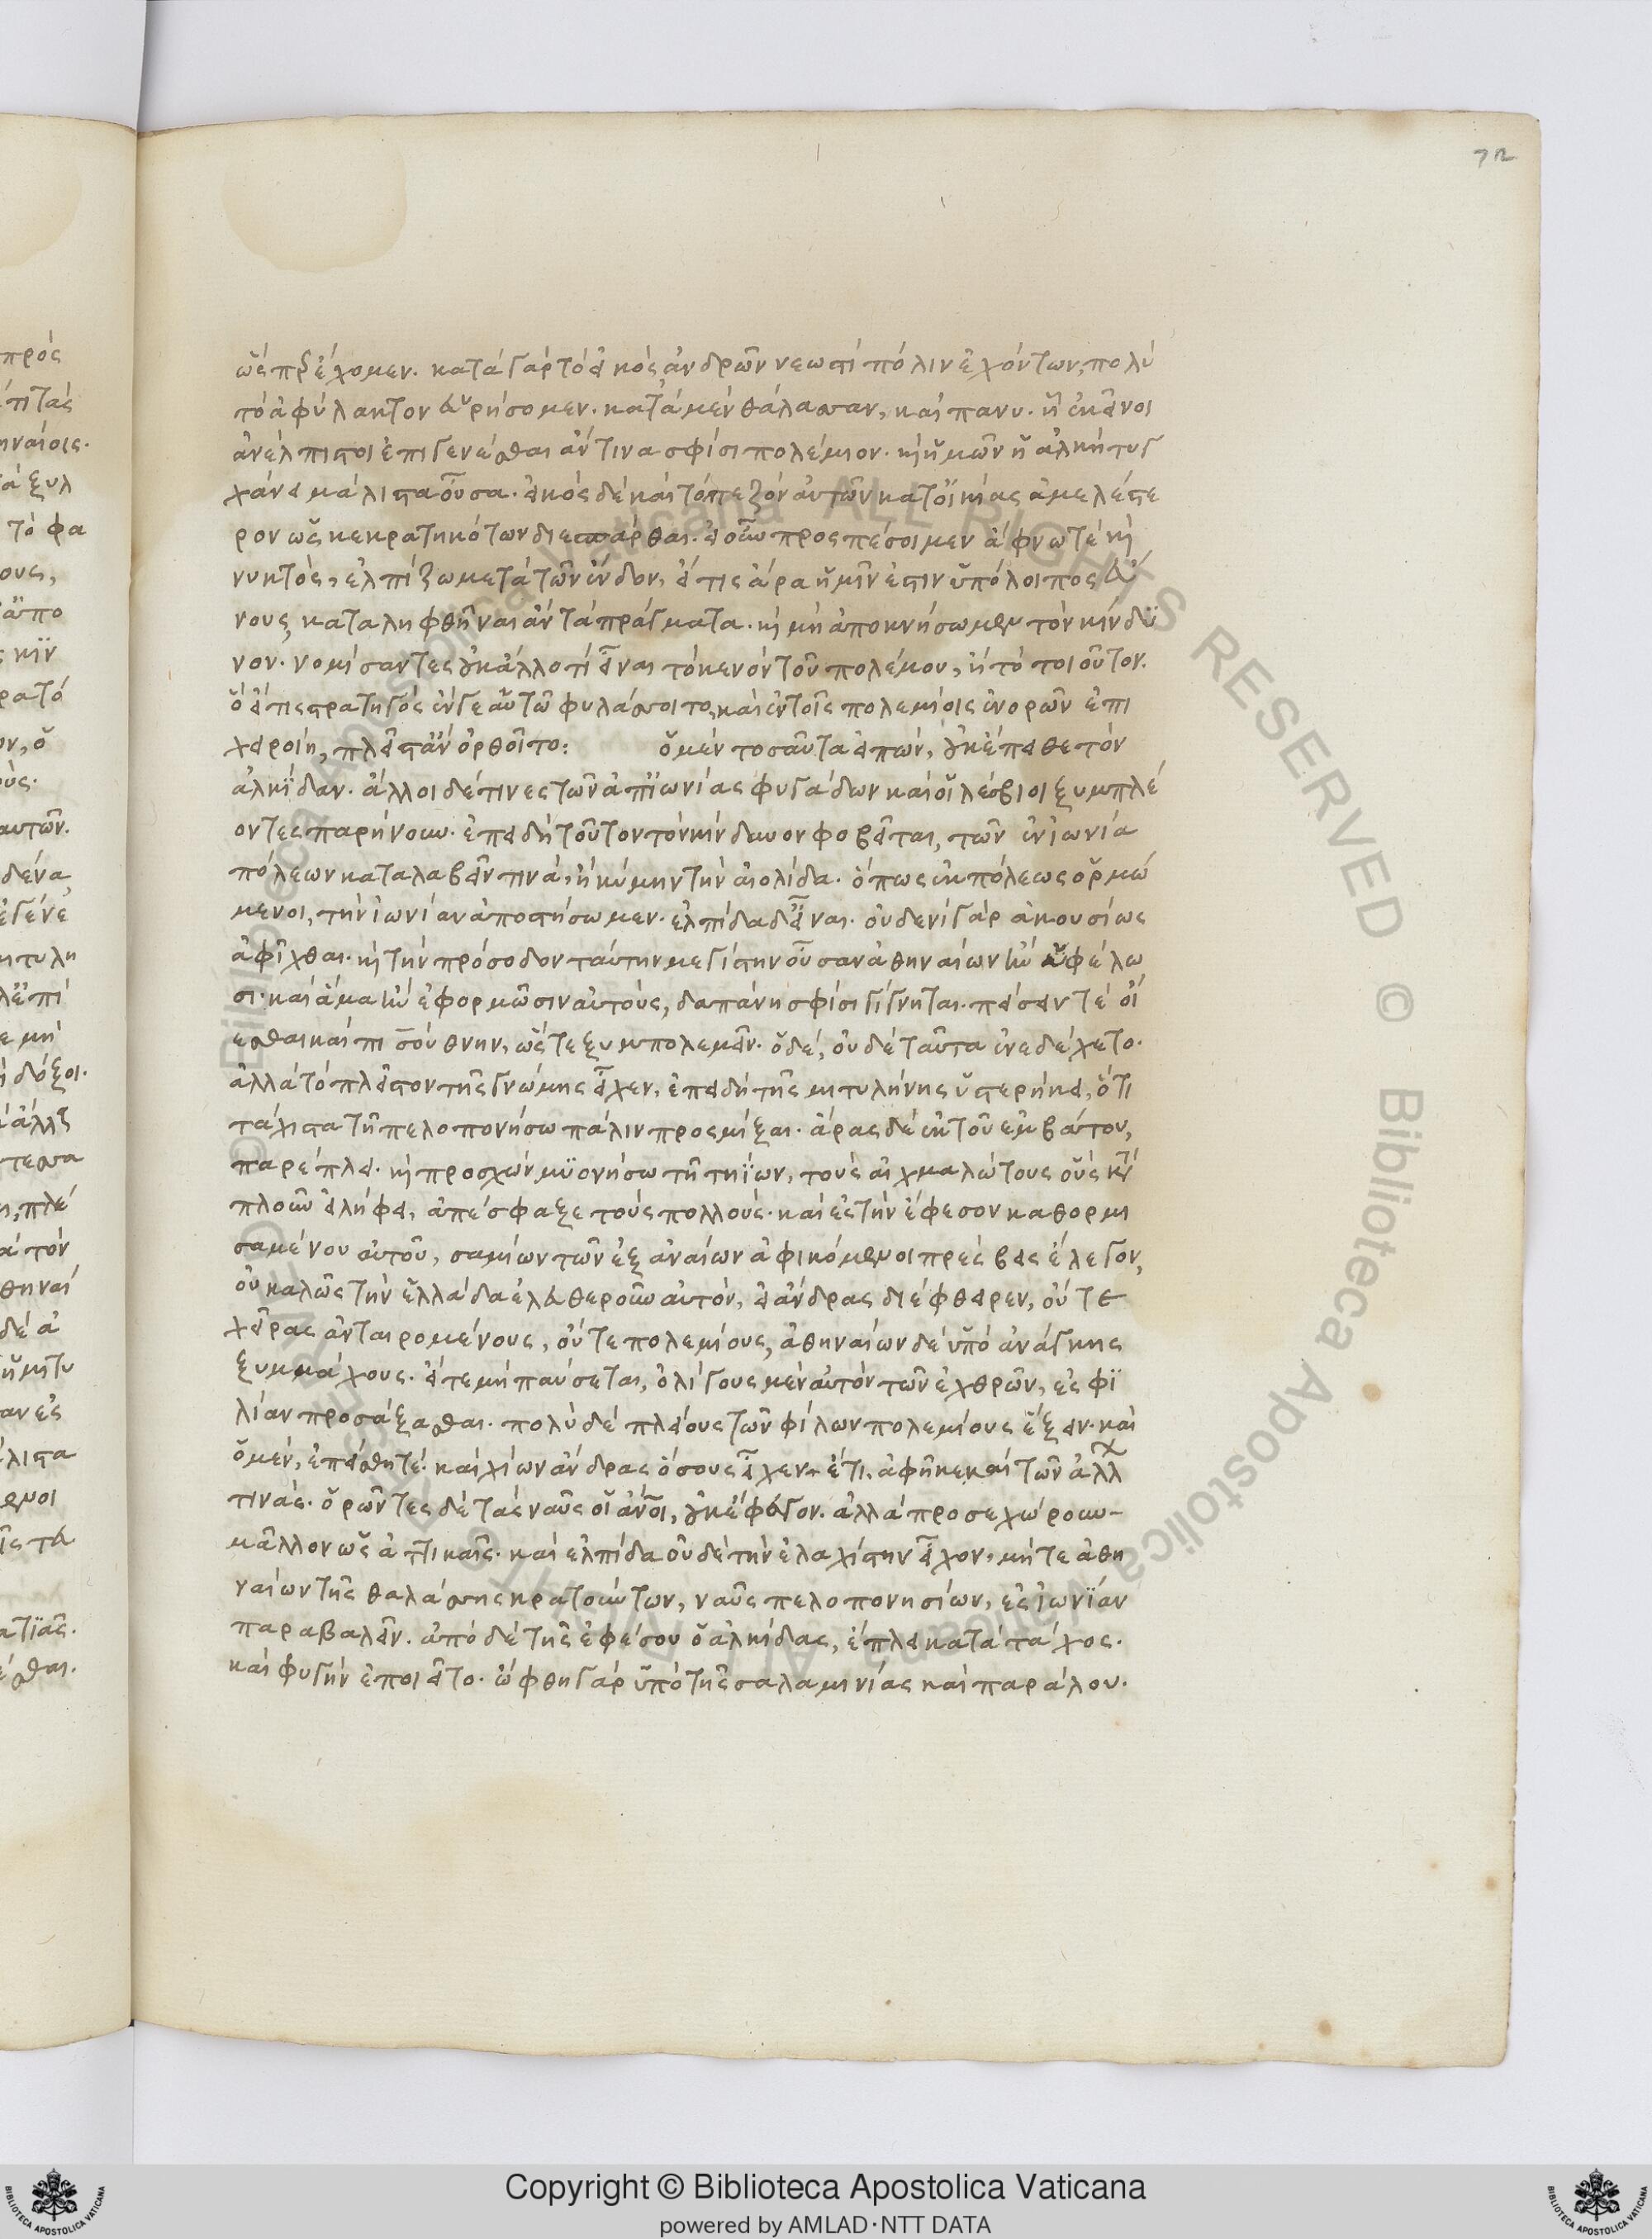 72
ὥσπερ ἔχομεν. κατὰ γὰρ τὸ εἰκὸς ἀνδρῶν νεωστὶ πόλιν ἐχόντων, πολὺ
τὸ ἀφύλακτον εὑρήσομεν. κατὰ μὲν θάλασσαν, καὶ πάνυ. ἧ ἐκεῖνοι
ἀνέλπιστοι ἐπιγενέσθαι ἄν τινα σφίσι πολέμιον. καὶ ἡμῶν ἡ ἀλκὴ τυγ
χάνει μάλιστα οὖσα. εἰκὸς δὲ καὶ τὸ πεζὸν αὐτῶν κατ' οἰκίας ἀμελέστε
ρον ὡς κεκρατηκότων διεσπάρθαι. εἰ οὖν προσπέσοιμεν ἄφνω τὲ καὶ
νυκτὸς, ἐλπίζω μετὰ τῶν ἔνδον, εἴ τις ἄρα ἡμῖν ἐστὶν ὑπόλοιπος εὔ
νους, καταληφθῆναι ἂν τὰ πράγματα. καὶ μὴ ἀποκνήσωμεν τὸν κίνδυ
νον. νομίσαντες οὐκ ἄλλο τί εἶναι τὸ κενὸν τοῦ πολέμου, ἢ τὸ τοιοῦτον.
ὃ εἴ τις στρατηγὸς ἔν γε αὑτῶ φυλάσσοιτο, καὶ ἐν τοῖς πολεμίοις ἐνορῶν ἐπι
χειροίη, πλεῖστ' ἂν ὀρθοῖτο: ὁ μὲν τοσαῦτα εἰπὼν, οὐκ ἔπειθε τὸν
ἀλκίδαν. ἄλλοι δέ τινες τῶν ἀπ' ἰωνίας φυγάδων καὶ οἱ λέσβιοι ξυμπλέ
οντες παρήνουν. ἐπειδὴ τοῦτον τὸν κίνδυνον φοβεῖται, τῶν ἐν ἰωνία
πόλεων καταλαβεῖν τινὰ, ἢ κύμην τὴν αἰολίδα. ὅπως ἐκ πόλεως ὁρμώ
μενοι, τὴν ἰωνίαν ἀποστήσωμεν. ἐλπίδα δ' εἶναι. οὐδενὶ γὰρ ἀκουσίως
ἀφῖχθαι. καὶ τὴν πρόσοδον ταύτην μεγίστην οὖσαν ἀθηναίων ἢν ὑφέλω
σι. καὶ ἅμα ἢν ἐφορμῶσιν αὐτοὺς, δαπάνη σφίσι γίγνηται. πείσειν τὲ οἴ
εσθαι καὶ πισσούθνην, ὥστε ξυμπολεμεῖν. ὁ δὲ, οὐδὲ ταῦτα ἐνεδέχετο.
ἀλλὰ τὸ πλεῖστον τῆς γνώμης εἶχεν, ἐπειδὴ τῆς μιτυλήνης ὑστερήκει, ὅτι
τάχιστα τῆ πελοπονήσω πάλιν προσμῖξαι. ἄρας δὲ ἐκ τοῦ ἐμβάτου,
παρέπλει. καὶ προσχὼν μυονήσω τῆ τηίων, τοὺς αἰχμαλώτους οὓς κατὰ
πλοῦν εἰλήφει, ἀπέσφαξε τοὺς πολλούς. καὶ ἐς τὴν ἔφεσον καθορμι
σαμένου αὐτοῦ, σαμίων τῶν ἐξ ἀναίων ἀφικόμενοι πρέσβεις ἔλεγον,
οὐ καλῶς τὴν ἑλλάδα ἐλευθεροῦν αὐτὸν, εἰ ἄνδρας διέφθειρεν, οὔτε
χεῖρας ἀνταιρομένους, οὔτε πολεμίους, ἀθηναίων δὲ ὑπὸ ἀνάγκης
ξυμμάχους. εἴ τε μὴ παύσεται, ὀλίγους μὲν αὐτὸν τῶν ἐχθρῶν, ἐς φι
λίαν προσάξασθαι. πολὺ δὲ πλείους τῶν φίλων πολεμίους ἕξειν. καὶ
ὁ μὲν, ἐπείσθη τέ. καὶ χίων ἄνδρας ὅσους εἶχεν ἔτι ἀφῆκε καὶ τῶν ἄλλων
τινάς. ὁρῶντες δὲ τὰς ναῦς οἱ ἄνθρωποι, οὐκ ἔφευγον. ἀλλὰ προσεχώρουν
μᾶλλον ὡς ἀττικαῖς. καὶ ἐλπίδα οὐδὲ τὴν ἐλαχίστην εἶχον, μήτε ἀθη
ναίων τῆς θαλάσσης κρατούντων, ναῦς πελοπονησίων, ἐς ἰωνίαν
παραβαλεῖν. ἀπὸ δὲ τῆς ἐφέσου ὁ ἀλκίδας, ἔπλει κατὰ τάχος.
καὶ φυγὴν ἐποιεῖτο. ὤφθη γὰρ ὑπὸ τῆς σαλαμινίας καὶ παράλου.
Copyright © Biblioteca Apostolica Vaticana
powered by AMLAD·NTT DATA